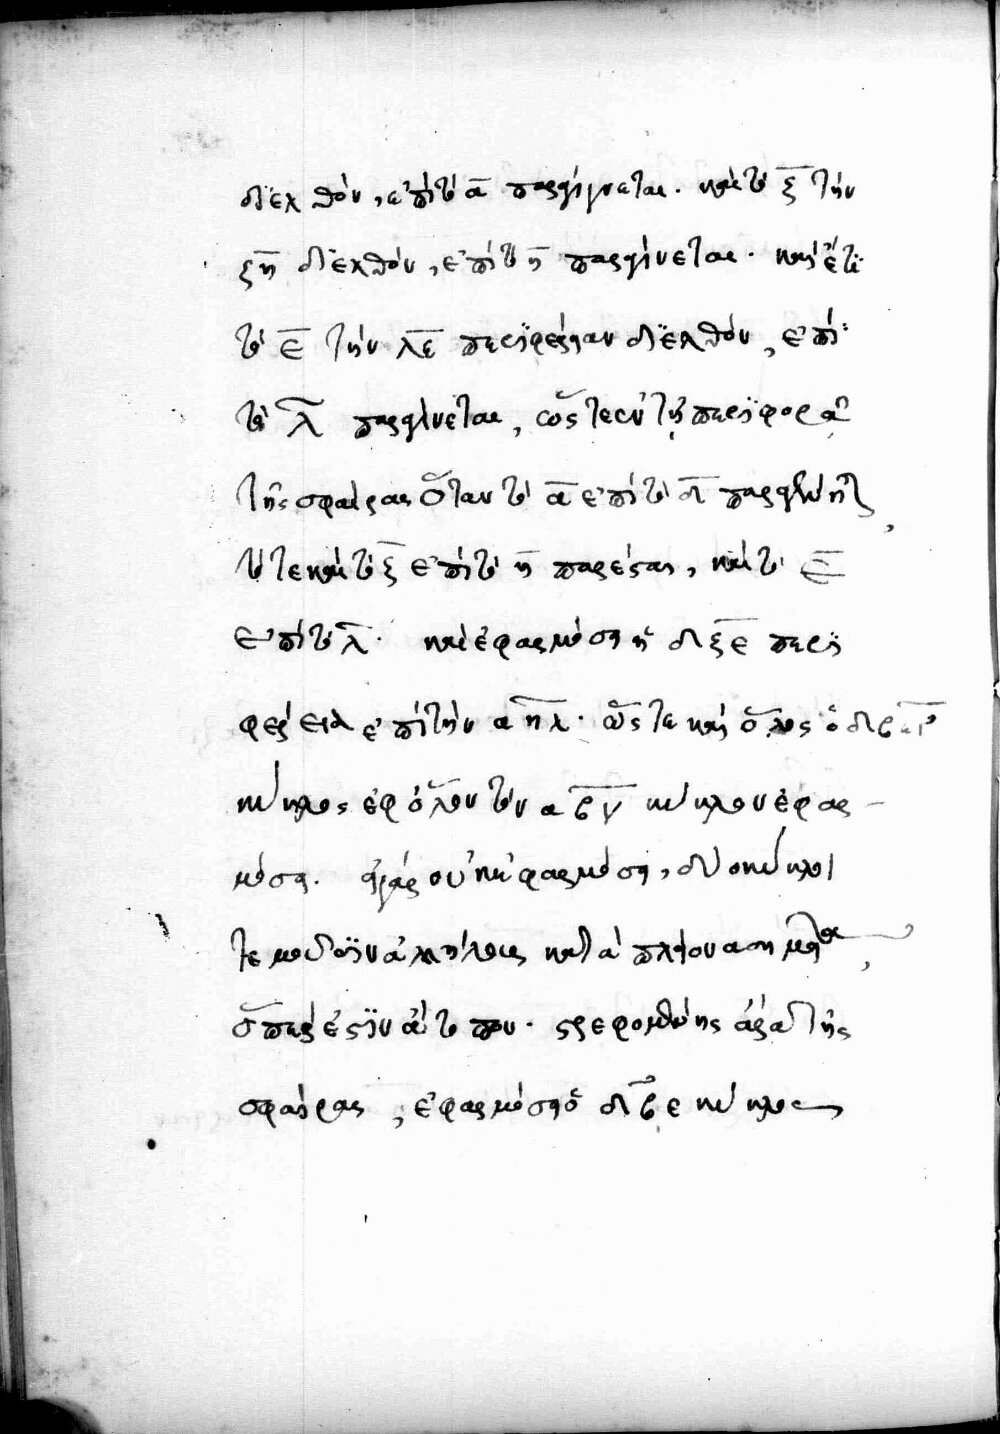 διελθὸν, ἐπὶ τὸ α̅ παραγίγνεται· καὶ τὸ ξ̅ τὴν
ξη̅ διελθὸν, ἐπὶ τὸ η̅ παραγίνεται· καὶ ἔτι
τὸ ε̅ τὴν λε̅ περιφέρειαν διελθὸν, ἐπὶ
τὸ λ̅ παραγίνεται, ὥστε ἐν τῇ περιφορᾷ
τῆς σφαίρας ὅταν τὸ α̅ ἐπὶ τὸ δ̅ παραγένηται,
τότε καὶ τὸ ξ̅ ἐπὶ τὸ η̅ παρέσται, καὶ τὸ ε̅
ἐπὶ τὸ λ̅· καὶ ἐφαρμόσει ἡ δξε̅ περι
φέρεια ἐπὶ τὴν αηλ̅· ὥστε καὶ ὅλος ὁ δβε̅
κύκλος ἐφ' ὅλον τὸν αβγ̅ κύκλον ἐφαρ
μόσει. εἰ γὰρ οὐκ ἐφαρμόσει, δύο κύκλοι
τεμοῦσιν ἀλλήλους κατὰ πλείονα σημεῖα,
ὅπερ ἐστὶν ἄτοπον· στρεφομένης ἄρα τῆς
σφαίρας, ἐφαρμόσει ὁ δβε κύκλος